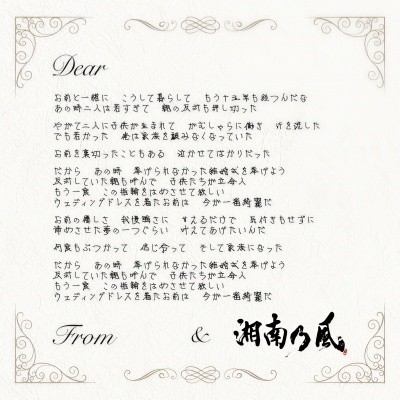 Dear
お前と一緒に　こうして暮らして　もう十五年も経つんだな
あの時二人は若すぎて　親の反対も押し切った
やがて二人に子供が生まれて　がむしゃらに働き　汗を流した
でも若かった　俺は家族を顧みなくなっていた
お前を裏切ったこともある　泣かせてばかりだった
だから　あの時　挙げられなかった結婚式を挙げよう
反対していた親も呼んで　子供たちが立会人
もう一度　この指輪をはめさせて欲しい
ウェディングドレスを着たお前は　今が一番綺麗だ
お前の優しさ　我慢強さに　甘えるだけで　気付きもせずに
諦めさせた夢の一つぐらい　叶えてあげたいんだ
何度もぶつかって　信じ合って　そして家族になった
だから　あの時　挙げられなかった結婚式を挙げよう
反対していた親も呼んで　子供たちが立会人
もう一度　この指輪をはめさせて欲しい
ウェディングドレスを着たお前は　今が一番綺麗だ
From & 湘南乃風